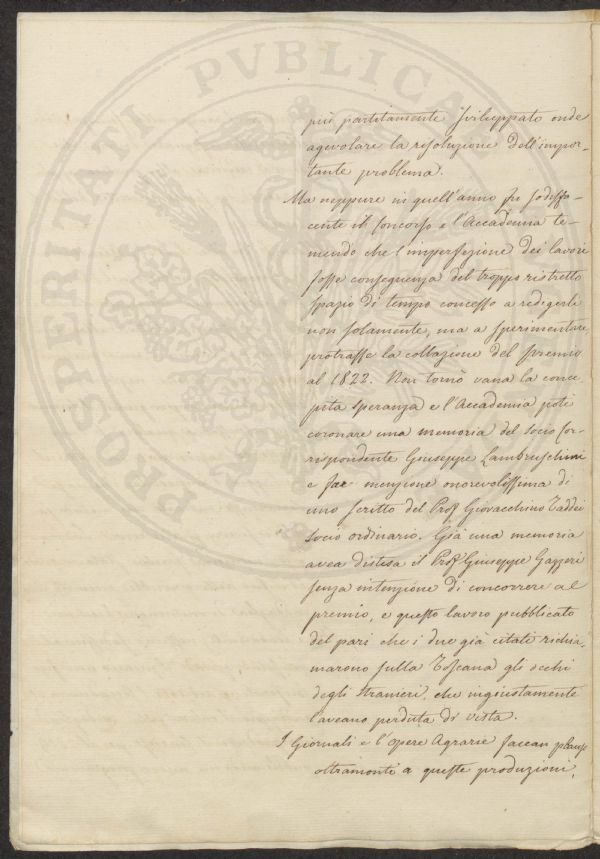 PROSPERITATI PVBLICAE
più partitamente sviluppato onde
agevolare la resoluzione dell'impor-
tante problema.
Ma neppure in quell'anno fu sodisfa-
cente il concorso e l'Accademia te-
mendo che l'imperfezione dei lavori
fosse conseguenza del troppo ristretto
spazio di tempo concesso a redegerli
non solamente, ma a sperimentare
protrasse la collazione del premio
al 1822. Non tornò vana la conce
pita speranza e l'Accademia potè
coronare una memoria del socio Cor-
rispondente Giuseppe Lambruschini
e far menzione onorevolissima di
uno scritto del Prof Giovacchino Taddei
socio ordinario. Già una memoria
avea distesa il Prof Giuseppe Gazzeri
senza intenzione di concorrere al
premio, e questo lavoro pubblicato
del pari che i due già citati richia,
marono sulla Toscana gli occhi
degli stranieri, che ingiustamente
l'aveano perduta di vista.
I Giornali e l'opere Agrarie faccan plauso
oltramonte a queste produzioni,